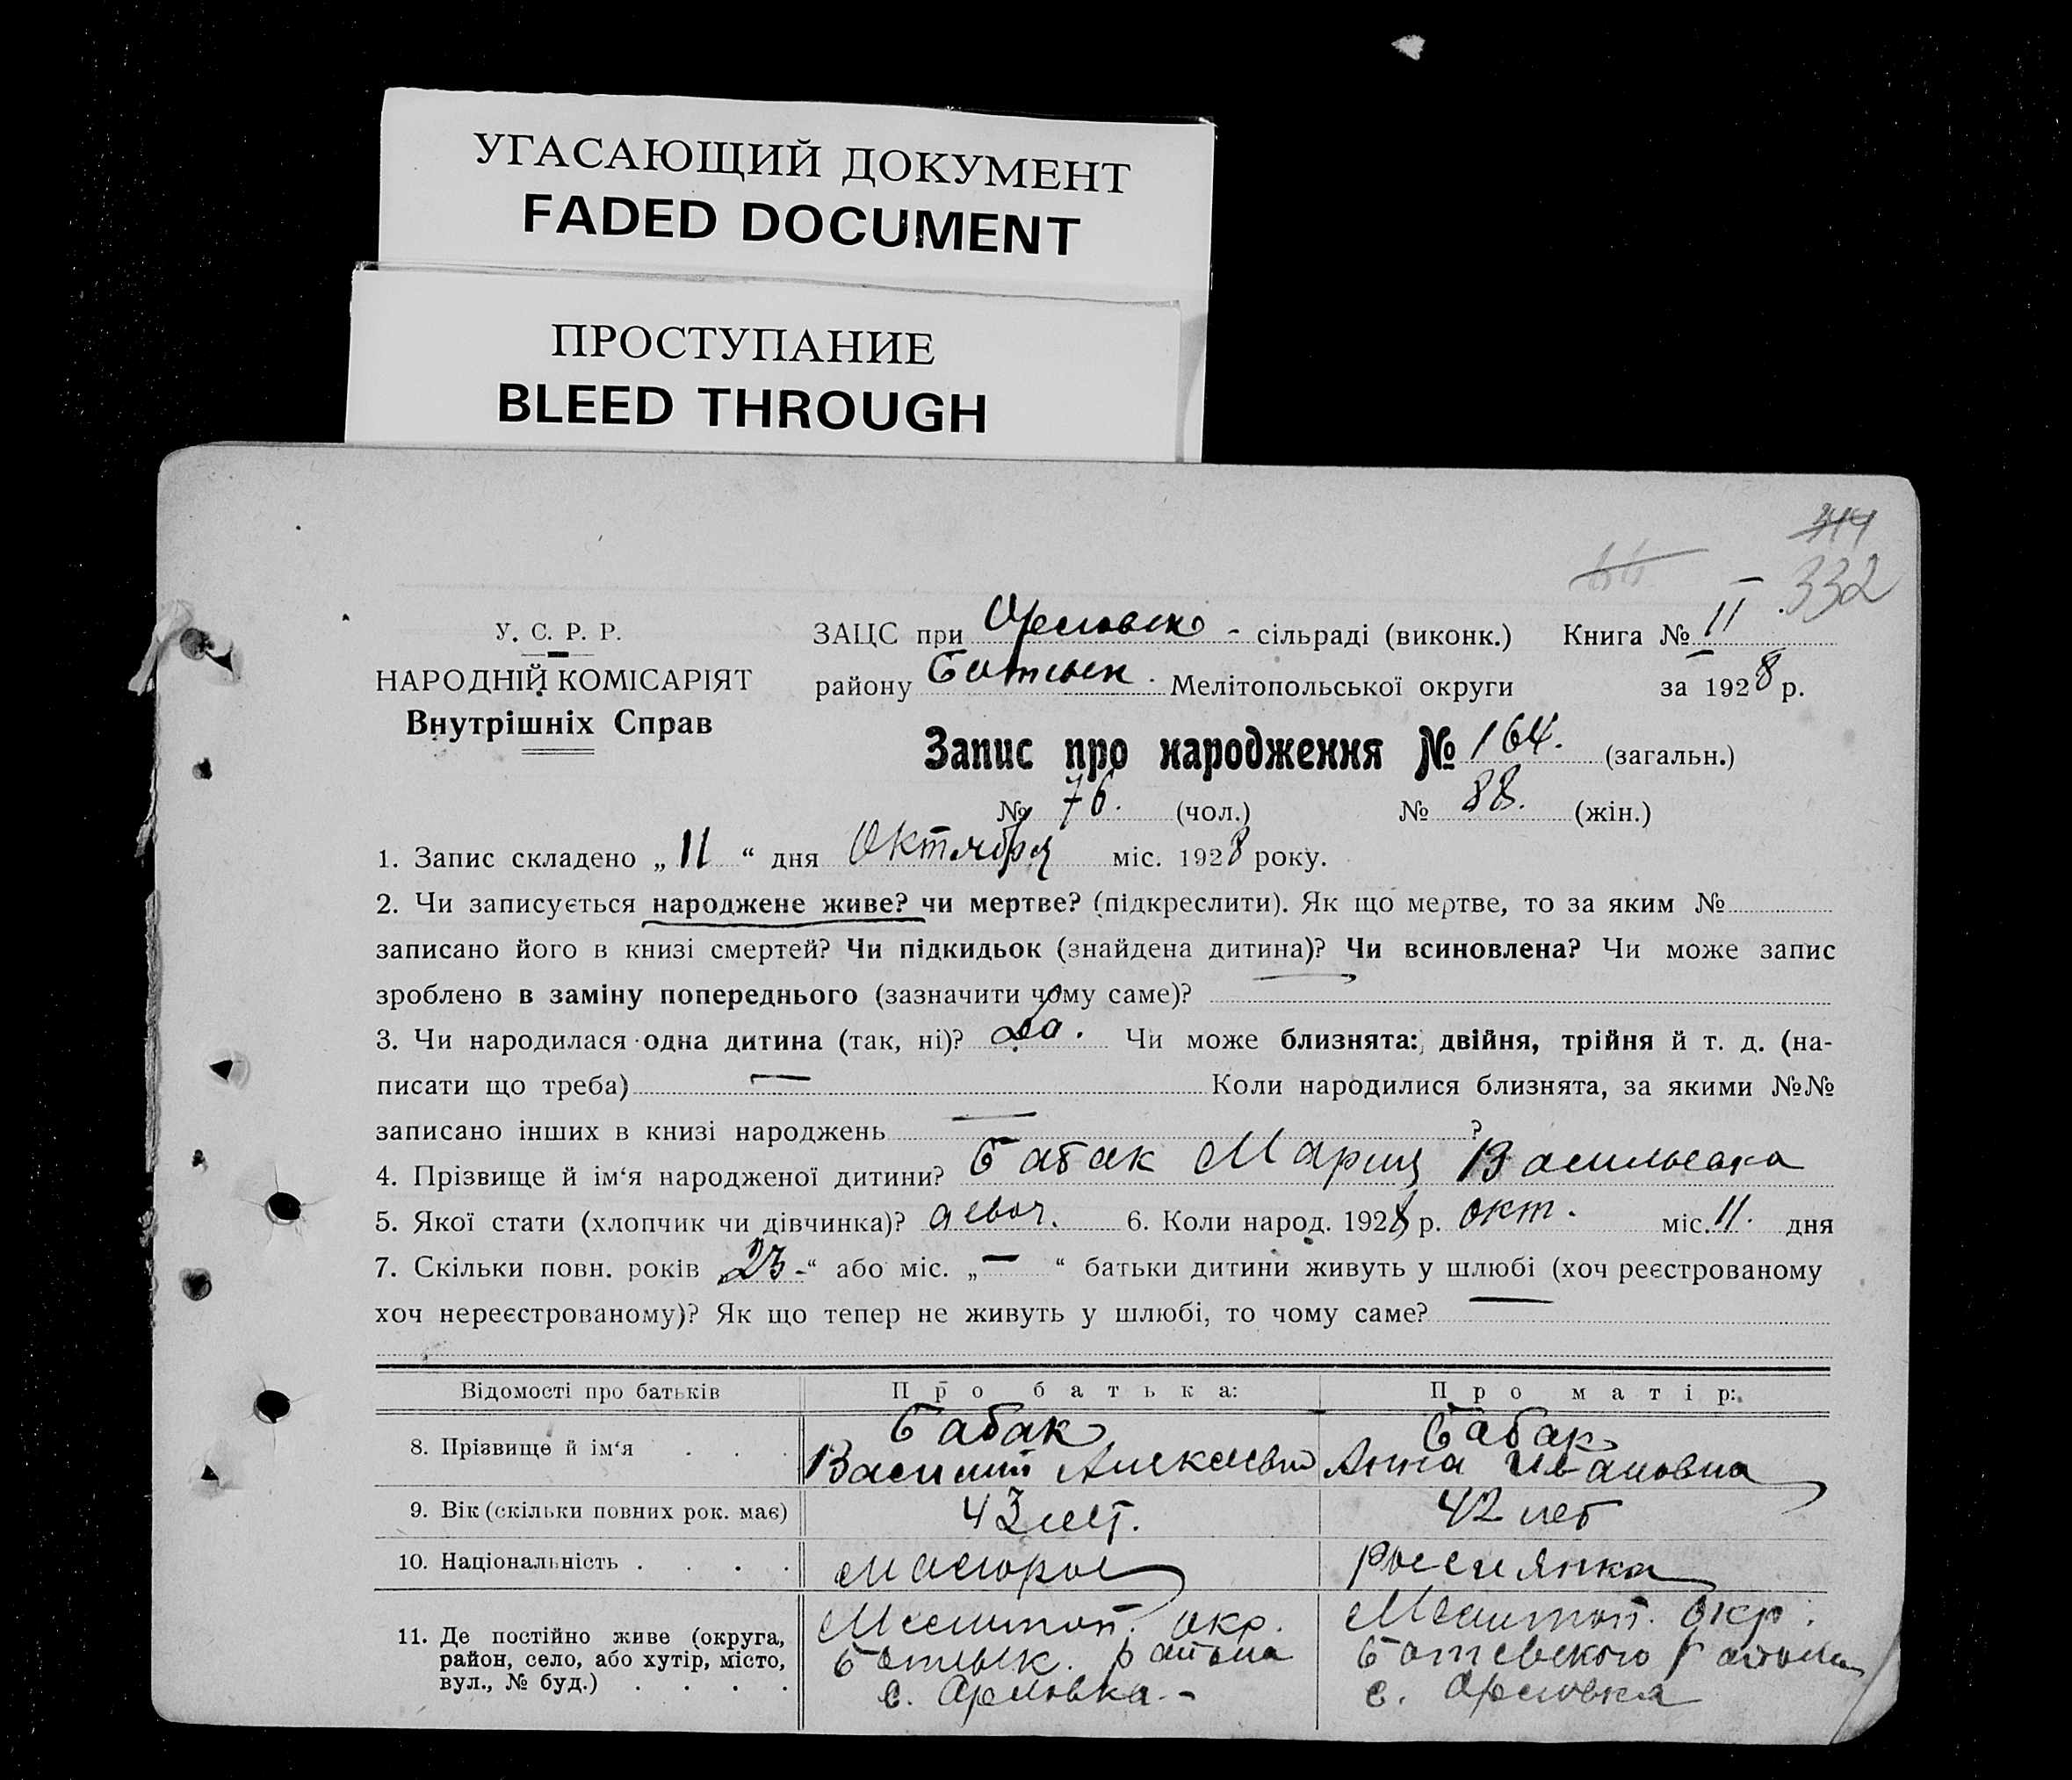 УГАСАЮЩИЙ ДОКУМЕНТ
FADED DOCUMENT
ПРОСТУПАНИЕ
BLEED THROUGH
332
У. С. Р. Р.
НАРОДНІЙ КОМІСАРІЯТ
Внутрішніх Справ
ЗАЦС при Орловск - сільраді (виконк.) Книга № II
району Ботьевск. Мелітопольської округи за 1928 р.
Запис про народження № 164. (загальн.)
№ 76. (чол.) № 88. (жін.)
1. Запис складено „11“ дня Октября міс. 1928 року.
2. Чи записується народжене живе? чи мертве? (підкреслити). Як що мертве, то за яким №
записано його в книзі смертей? Чи підкидьок (знайдена дитина)? Чи всиновлена? Чи може запис
зроблено в заміну попереднього (зазначити чому саме)?
3. Чи народилася одна дитина (так, ні)? Да. Чи може близнята: двійня, трійня й т. д. (на-
писати що треба) — Коли народилися близнята, за якими №№
записано інших в книзі народжень — ?
4. Прізвище й ім‘я народженої дитини? Бабак Мария Васильевна
5. Якої стати (хлопчик чи дівчинка)? девоч. 6. Коли народ. 1928 р. окт. міс. 11. дня
7. Скільки повн. років „23-“ або міс. „—“ батьки дитини живуть у шлюбі (хоч реєстрованому
хоч нереєстрованому)? Як що тепер не живуть у шлюбі, то чому саме? —
Відомості про батьків Про батька: Про матір:
8. Прізвище й ім‘я . . . Бабак Бабак
Василий Алексеевич Анна Ивановна
9. Вік (скільки повних рок. має) 43 лет. 42 лет
10. Національність . . . . малорос россиянка
11. Де постійно живе (округа, район, село, або хутір, місто, вул., № буд.) . . . . Мелитоп. окр. Мелитоп. окр.
Ботьевск. района Ботьевского района
с. Орловка. - с. Орловка